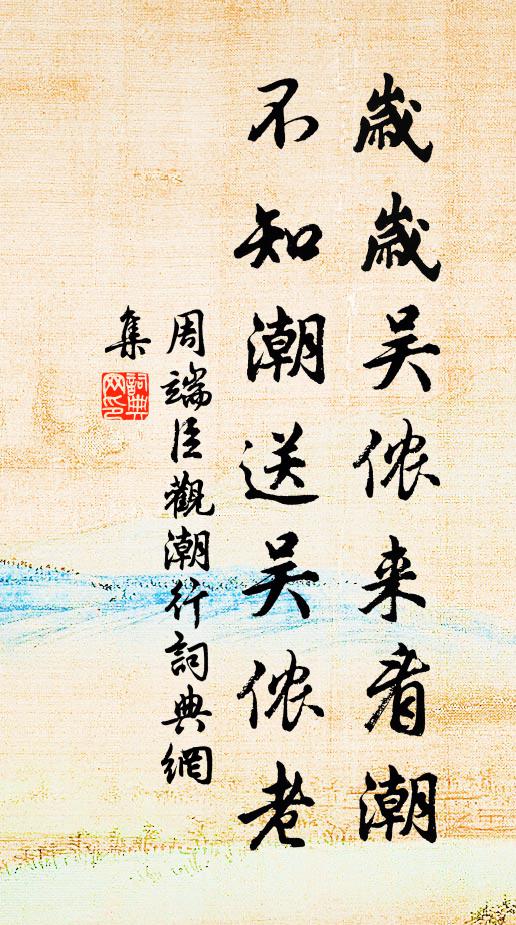 歲歲吴侬来看潮
不知潮送吴侬老
周端臣觀潮行詞典網
集
詞典
网印